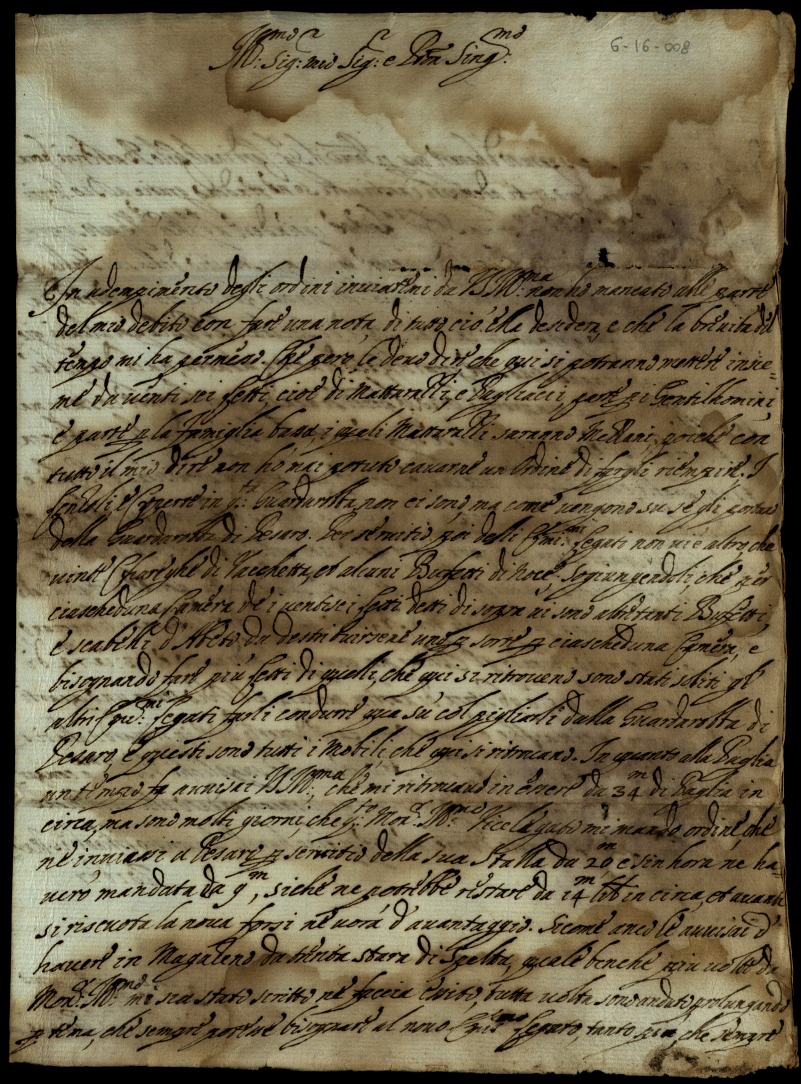 6-16-008
Ill:mo Sig:r mio Sig:r e Pron Sing:mo
In adempimento degli ordini inviatemi da V.S. Ill:ma non ho mancato alle parti
del mio debito con fare una nota di tutto ciò ch'ella desidera, e che la brevità del
tempo mi ha permesso. Che però le devo dire che qui si potranno mettere insie=
me da venti sei letti, cioè di Mattarazzi, e Pagliacci, parte pi Gentilhomini,
e parte p la famiglia bassa, i quali Mattarazzi saranno poichè con
tutto il mio dire non ho mai potuto cavarne un ordine di fargli riempire. I
lenzoli e coperte in q:ta Guardarobba non ci sono, ma come vengono su se gli portano
della Guardarobba di Pesaro. Per servitio poi delli Emi:mi Legati non vi è altro che
vinti Chareghe di Vacchetta, et alcuni Buffetti di Noce. Sogiungendoli, che per
ciascheduna Camera de i ventisei letti detti di sopra vi sono altretanti Buffetti,
e scabelli d'Abeto da destribuirsene uno p sorte p ciascheduna Camera, e
bisognando fare più letti di quelli, che qui si ritrovano sono stati soliti gl'
altri Emi:mi Legati farli condurre qua sù col pigliarli dalla Guardarobba di
Pesaro, e questi sono tutti i Mobili, che qui si ritrovano. In quanto alla Paglia
un tempo fa avvisai V.S. Ill:ma, che mi ritrovavo in essere da 34 m di Paglia in
circa, ma sono molti giorni, che q:to Mon:r Ill:mo Vice legato mi mandò ordine, che
ne inviassi a Pesaro p servitio della sua Stalla da 20 m e sin hora ne ha=
verò mandata da 9 m, sichè ne potrebbe restare da 14 m lib in circa, et avanti
si riscuota la nova forsi ne vorà d'avantaggio. Sicome anco le avvisai d'
havere in Magazeno da trenta stara di Spelta, quale benchè più volte da
Mon:r Ill:mo mi sia stato scritto ne faccia esito, tutta volta sono andato prolungando
p tema, che sempre potesse bisognare al novo Emi:mo Legato, tanto più, che sempre